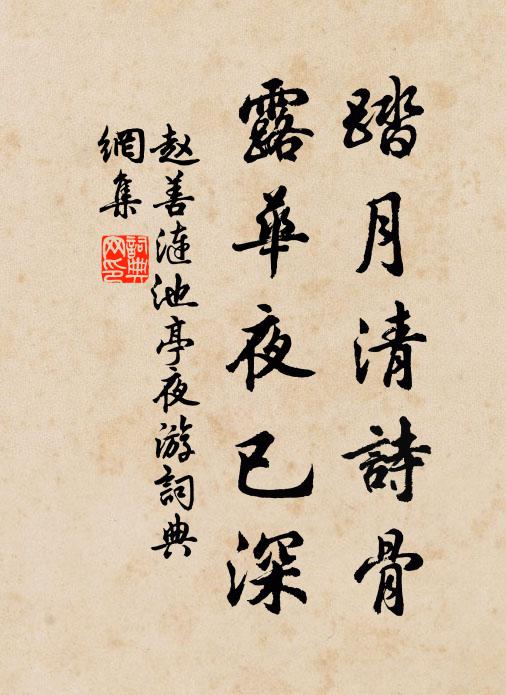 踏月清詩骨
露華夜已深
赵善涟池亭夜游詞典
網集
詞典
网印